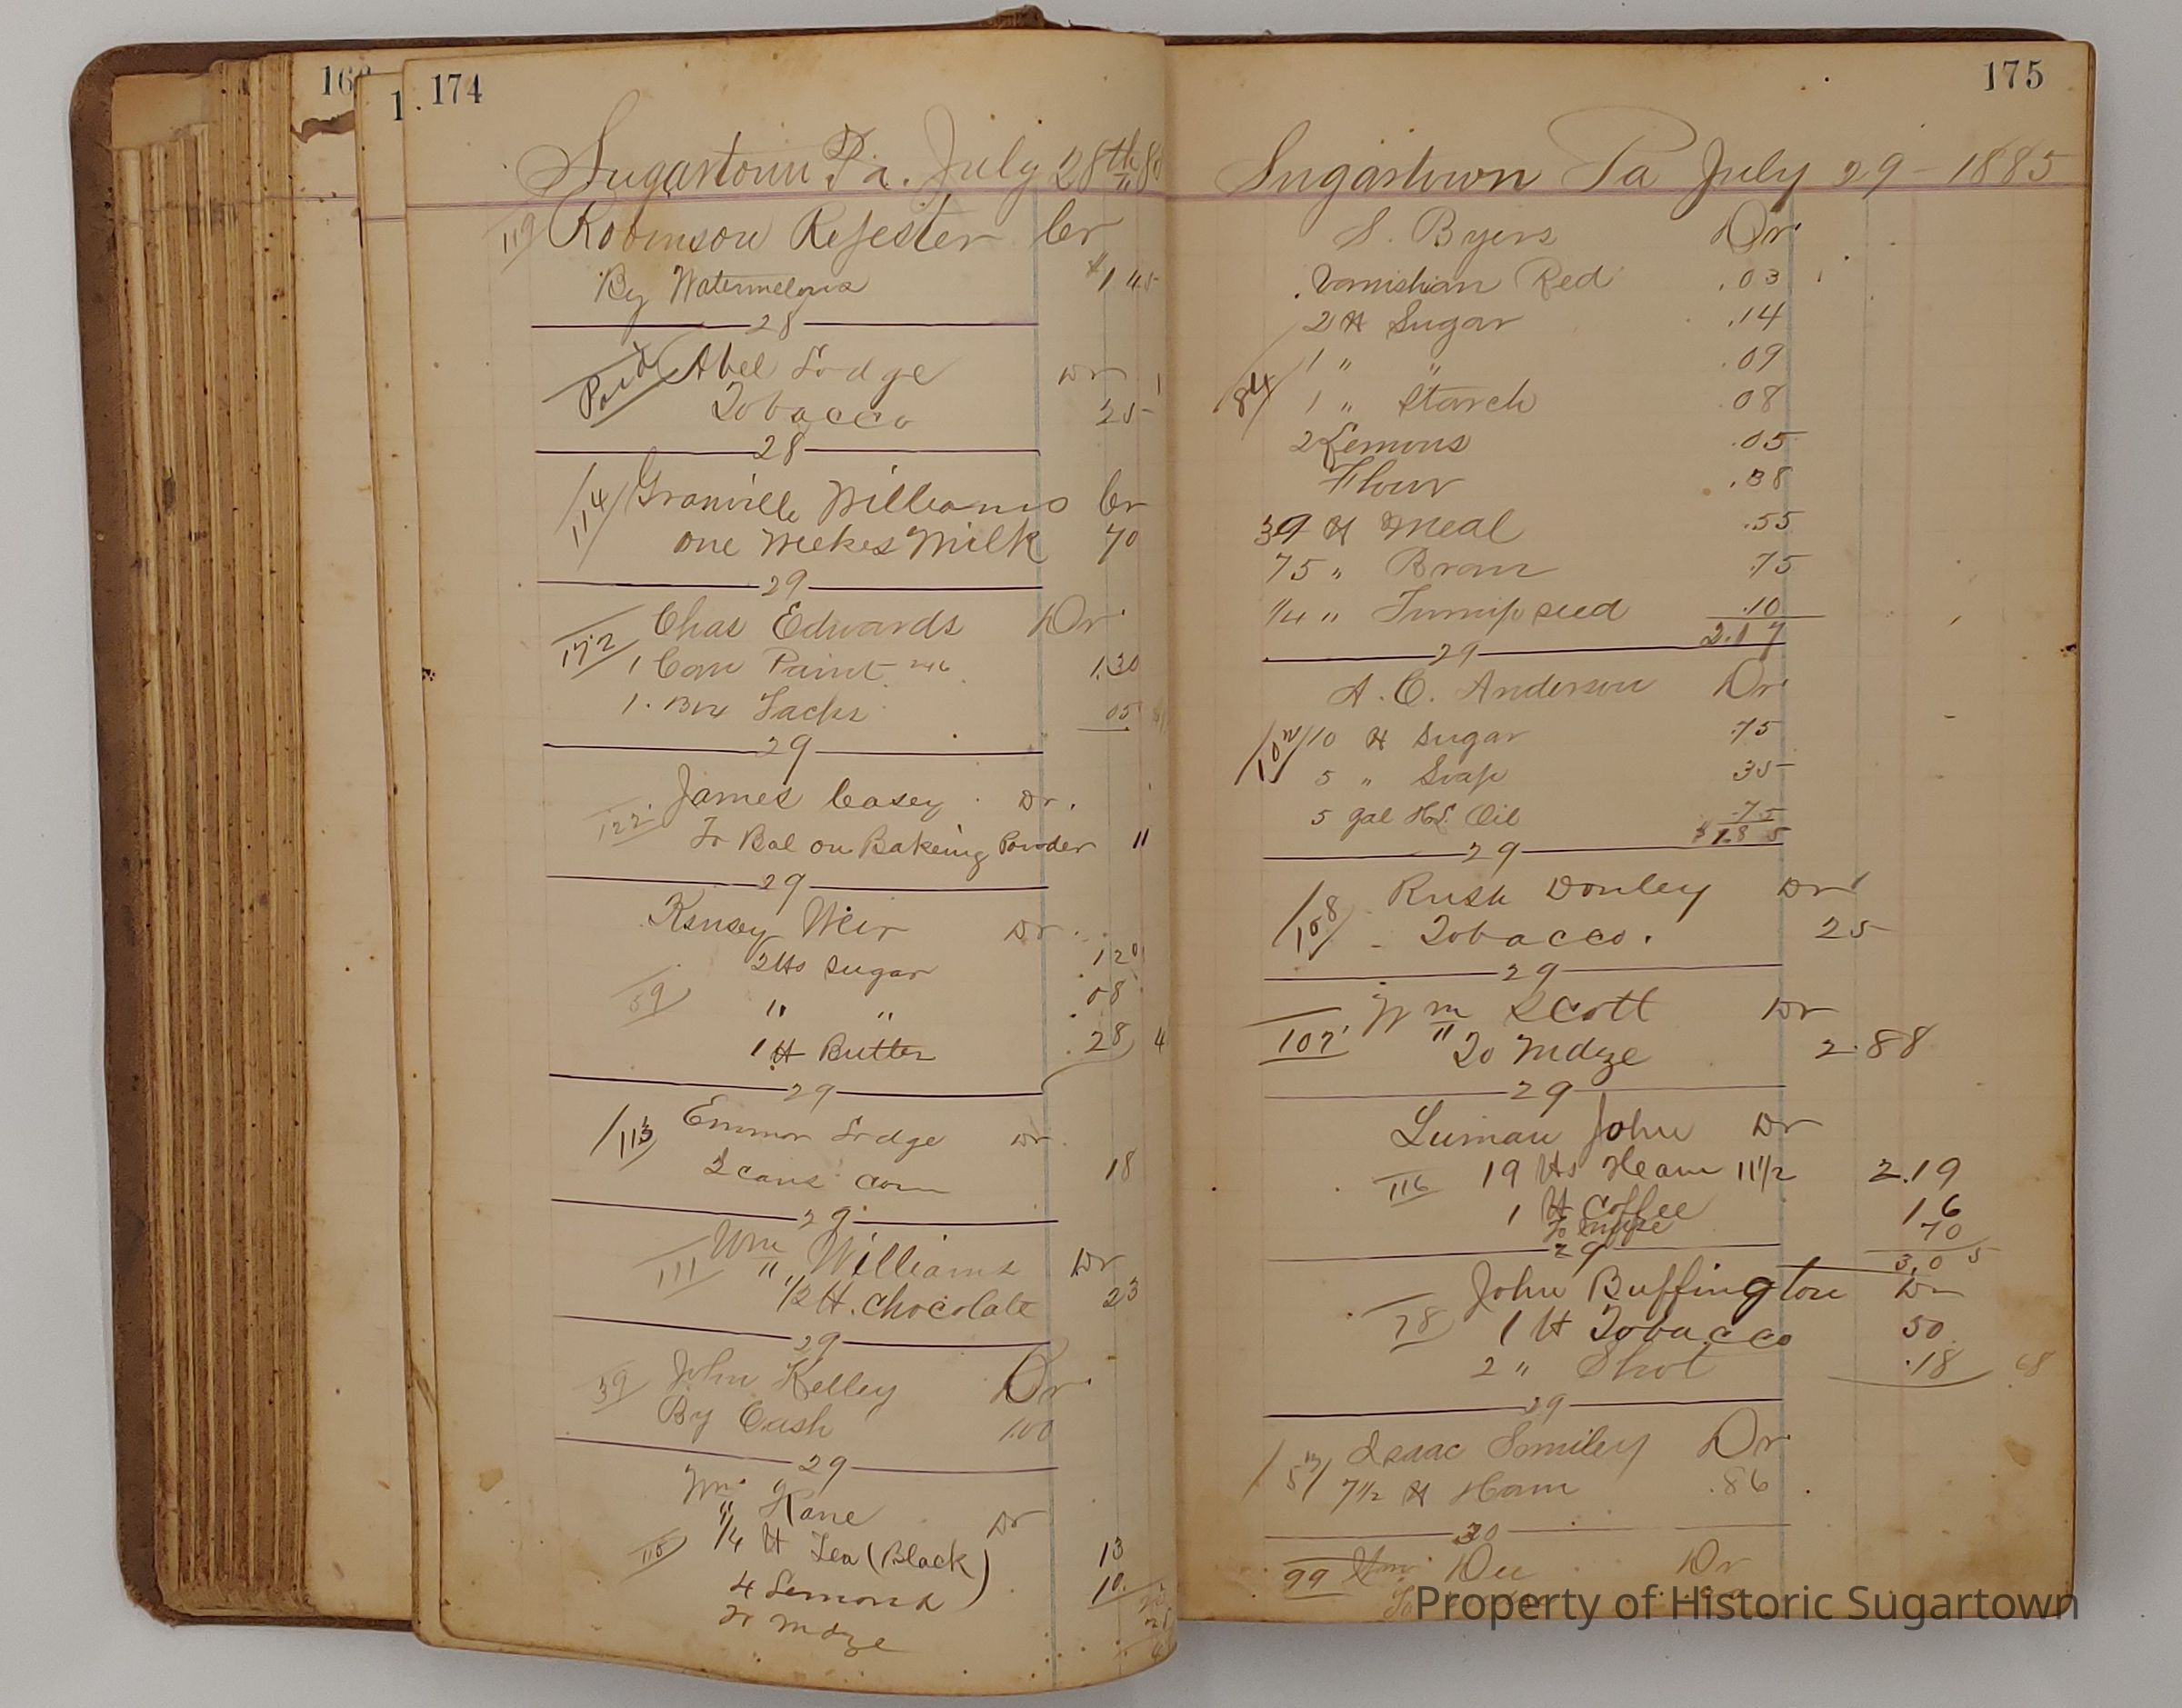 174
Sugartown Pa. July 28th
119 Robinson Refester Cr
By Watermelons $1 45
28
Paid Abel Lodge Dr
Tobacco 25
28
114 Granville Williams Cr
one Weekes Milk 70
29
172 Chas Edwards Dr
1 Can Paint 1.30
1 Bx Tacks 05
29
122 James Casey Dr.
To Bal on Bakeing Powder 11
29
Kinsey Weir Dr
2 lbs Sugar 12
59 " " 08
1 lb Butter .28
29
113 Emmor Lodge Dr
2 cans corn 18
29
111 Wm Williams Dr
1/2 lb. Chocolate 23
29
39 John Kelley Dr
By Cash 1.00
29
Wm Kane Dr
1/4 lb Tea (Black) 13
4 Lemons 10
To Mdze
175
Sugartown Pa July 29 - 1885
S. Byers Dr
Vanishian Red .03
2 lb Sugar .14
1 " " .09
84 1 " Starch 08
2 Lemons .05
Flour .38
39 lb Meal .55
75 " Bran .75
1/4 " Turnip seed .10
2.17
29
A. C. Anderson Dr
10 lb Sugar .75
5 " Soap 35
5 gal H.L. Oil .75
$1.85
29
108 Rush Donley Dr
Tobacco. 25
29
107 Wm Scott Dr
To Mdze 2.88
29
Luman John Dr
116 19 lbs Heam 11 1/2 2.19
1 lb Coffee 16
To Mdze 70
29
3.05
John Buffington Dr
78 1 lb Tobacco 50
2 " Shot .18 68
29
Isaac Smiley Dr
7 1/2 lb Ham .86
30
99 Dr
Property of Historic Sugartown